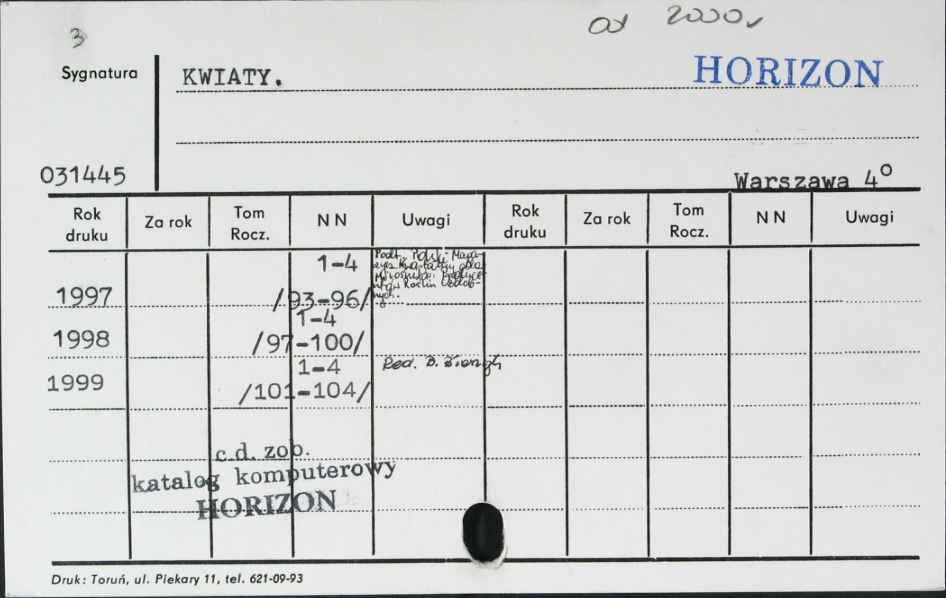 3
od 2000r
Sygnatura
KWIATY.
HORIZON
031445
Warszawa 4°
Rok druku Za rok Tom Rocz. N N Uwagi Rok druku Za rok Tom Rocz. N N Uwagi
1997 1-4 /93-96/
1998 1-4 /97-100/
1999 1-4 /101-104/ Red. B.
c.d. zob.
katalog komputerowy
HORIZON
Druk: Toruń, ul. Piekary 11, tel. 621-09-93